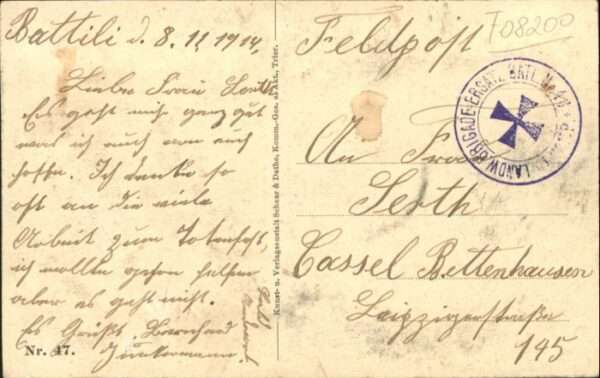 Battili d. 8.11.1914.
Liebe Frau Serth
Es geht mir ganz gut
was ich auch von euch
hoffe. Ich denke so
oft an die viele
Arbeit zum Totenfest,
ich wollte gern helfen
aber es geht nicht.
Es Grüßt Bernhard
Junkermann
Nr. 47.
Kunst- u. Verlagsanstalt Schaar & Dathe, Komm.-Ges. a. Akt., Trier.
Feldpost
F08200
BRIGADE-ERSATZ BATL. No. 42
LANDW.
An Frau
Serth
Cassel Bettenhausen
Leipzigerstraße
145